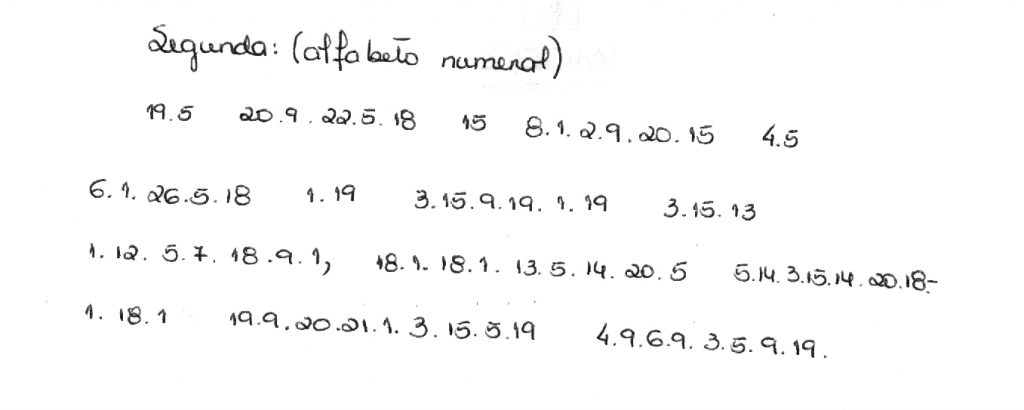 Segunda: (alfabeto numeral)
19.5 20.9.22.5.18 15 8.1.2.9.20.15 4.5
6.1.26.5.18 1.19 3.15.9.19.1.19 3.15.13
1.12.5.7.18.9.1, 18.1.18.1.13.5.14.20.5 5.14.3.15.14.20.18-
1.18.1 19.9.20.21.1.3.15.5.19 4.9.6.9.3.5.9.19.